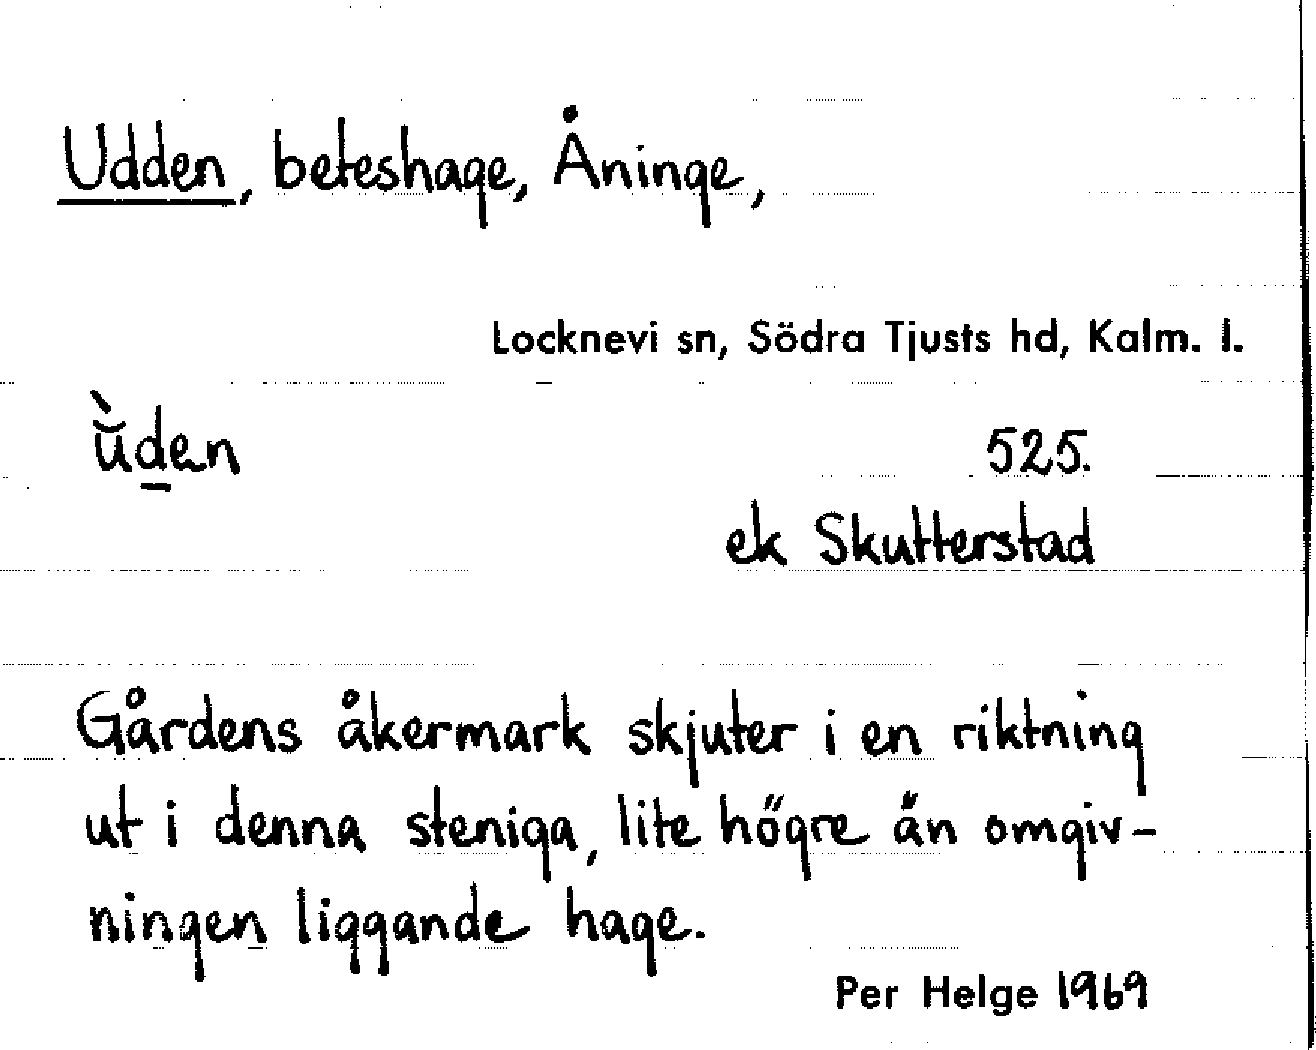 Udden, beteshage, Åninge,
Locknevi sn, Södra Tjusts hd, Kalm. l.
ù̆d̲en 525.
ek Skutterstad
Gårdens åkermark skjuter i en riktning
ut i denna steniga, lite högre än omgiv-
ningen liggande hage.
Per Helge 1969